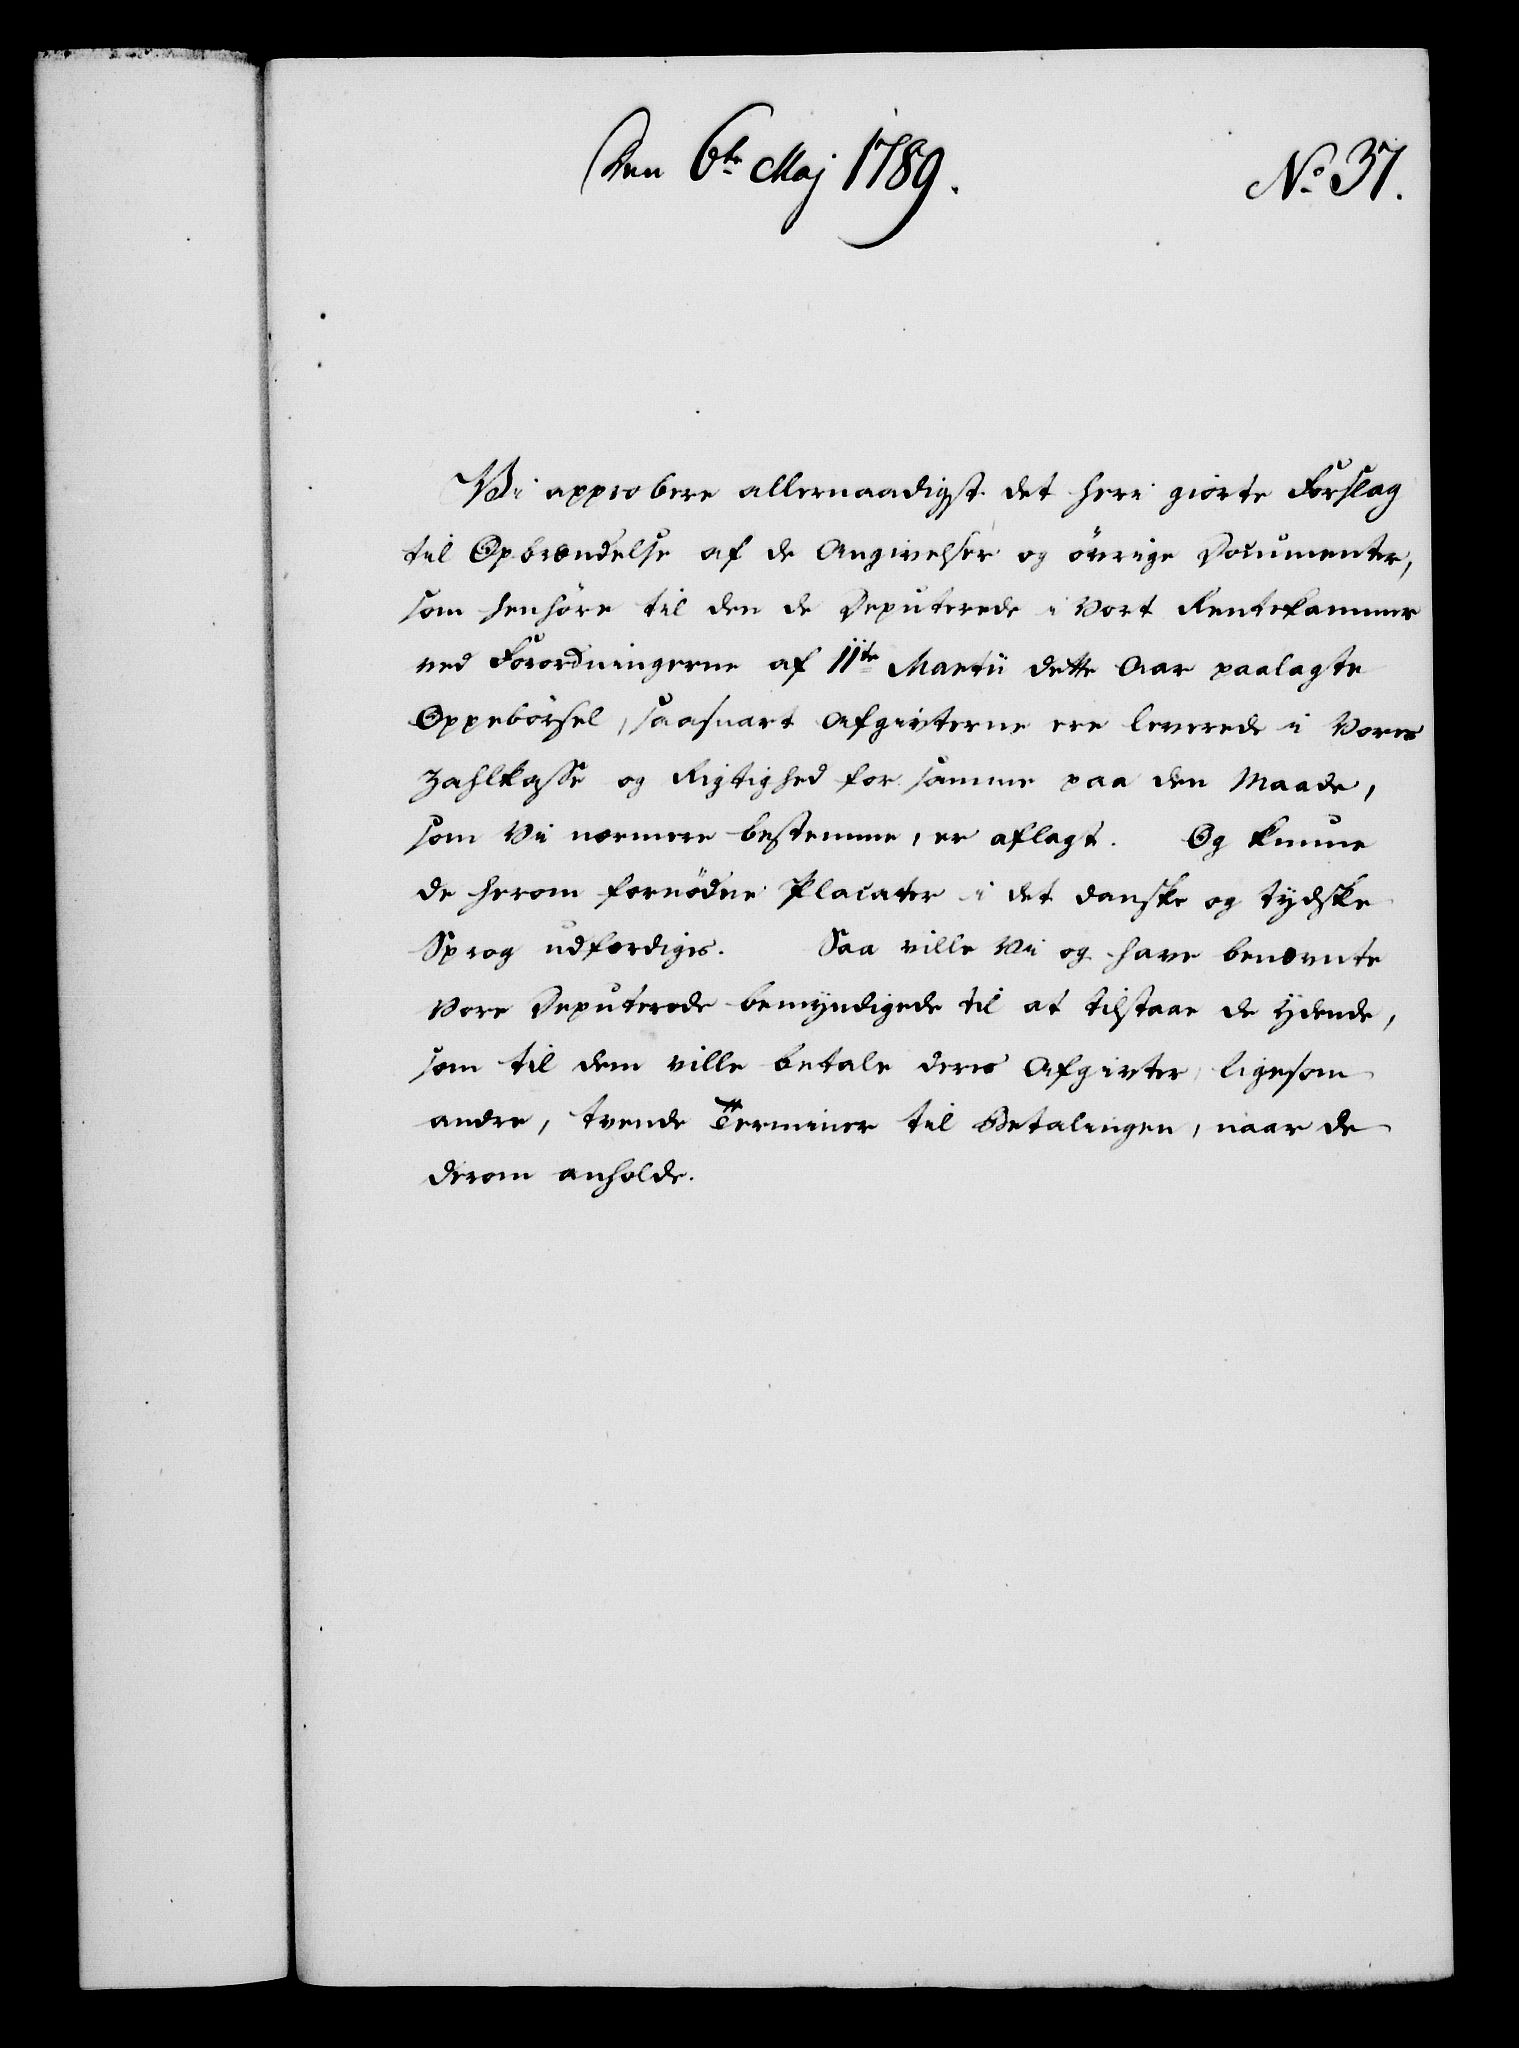 Den 6te Maj 1789.
No 37.
Vi approbere allernaadigst det heri giorte Forslag
til Opbrændelse af de Angivelser og övrige Documenter,
som henhöre til den de Deputerede i Vort Rentekammer
ved Forordningerne af 11te Martii dette Aar paalagte
Oppebörsel, saasnart Afgivterne ere leverede i Vores
Zahlkasse og Rigtighed for samme paa den Maade,
som Vi nærmere bestemme, er aflagt. Og kunne
de herom fornödne Placater i det danske og tydske
Sprog udfærdiges. Saa ville Vi og have benævnte
Vore Deputerede bemyndigede til at tilstaae de ydende,
som til dem ville betale deres Afgivter, ligesom
andre, tvende Terminer til Betalingen, naar de
derom anholde.